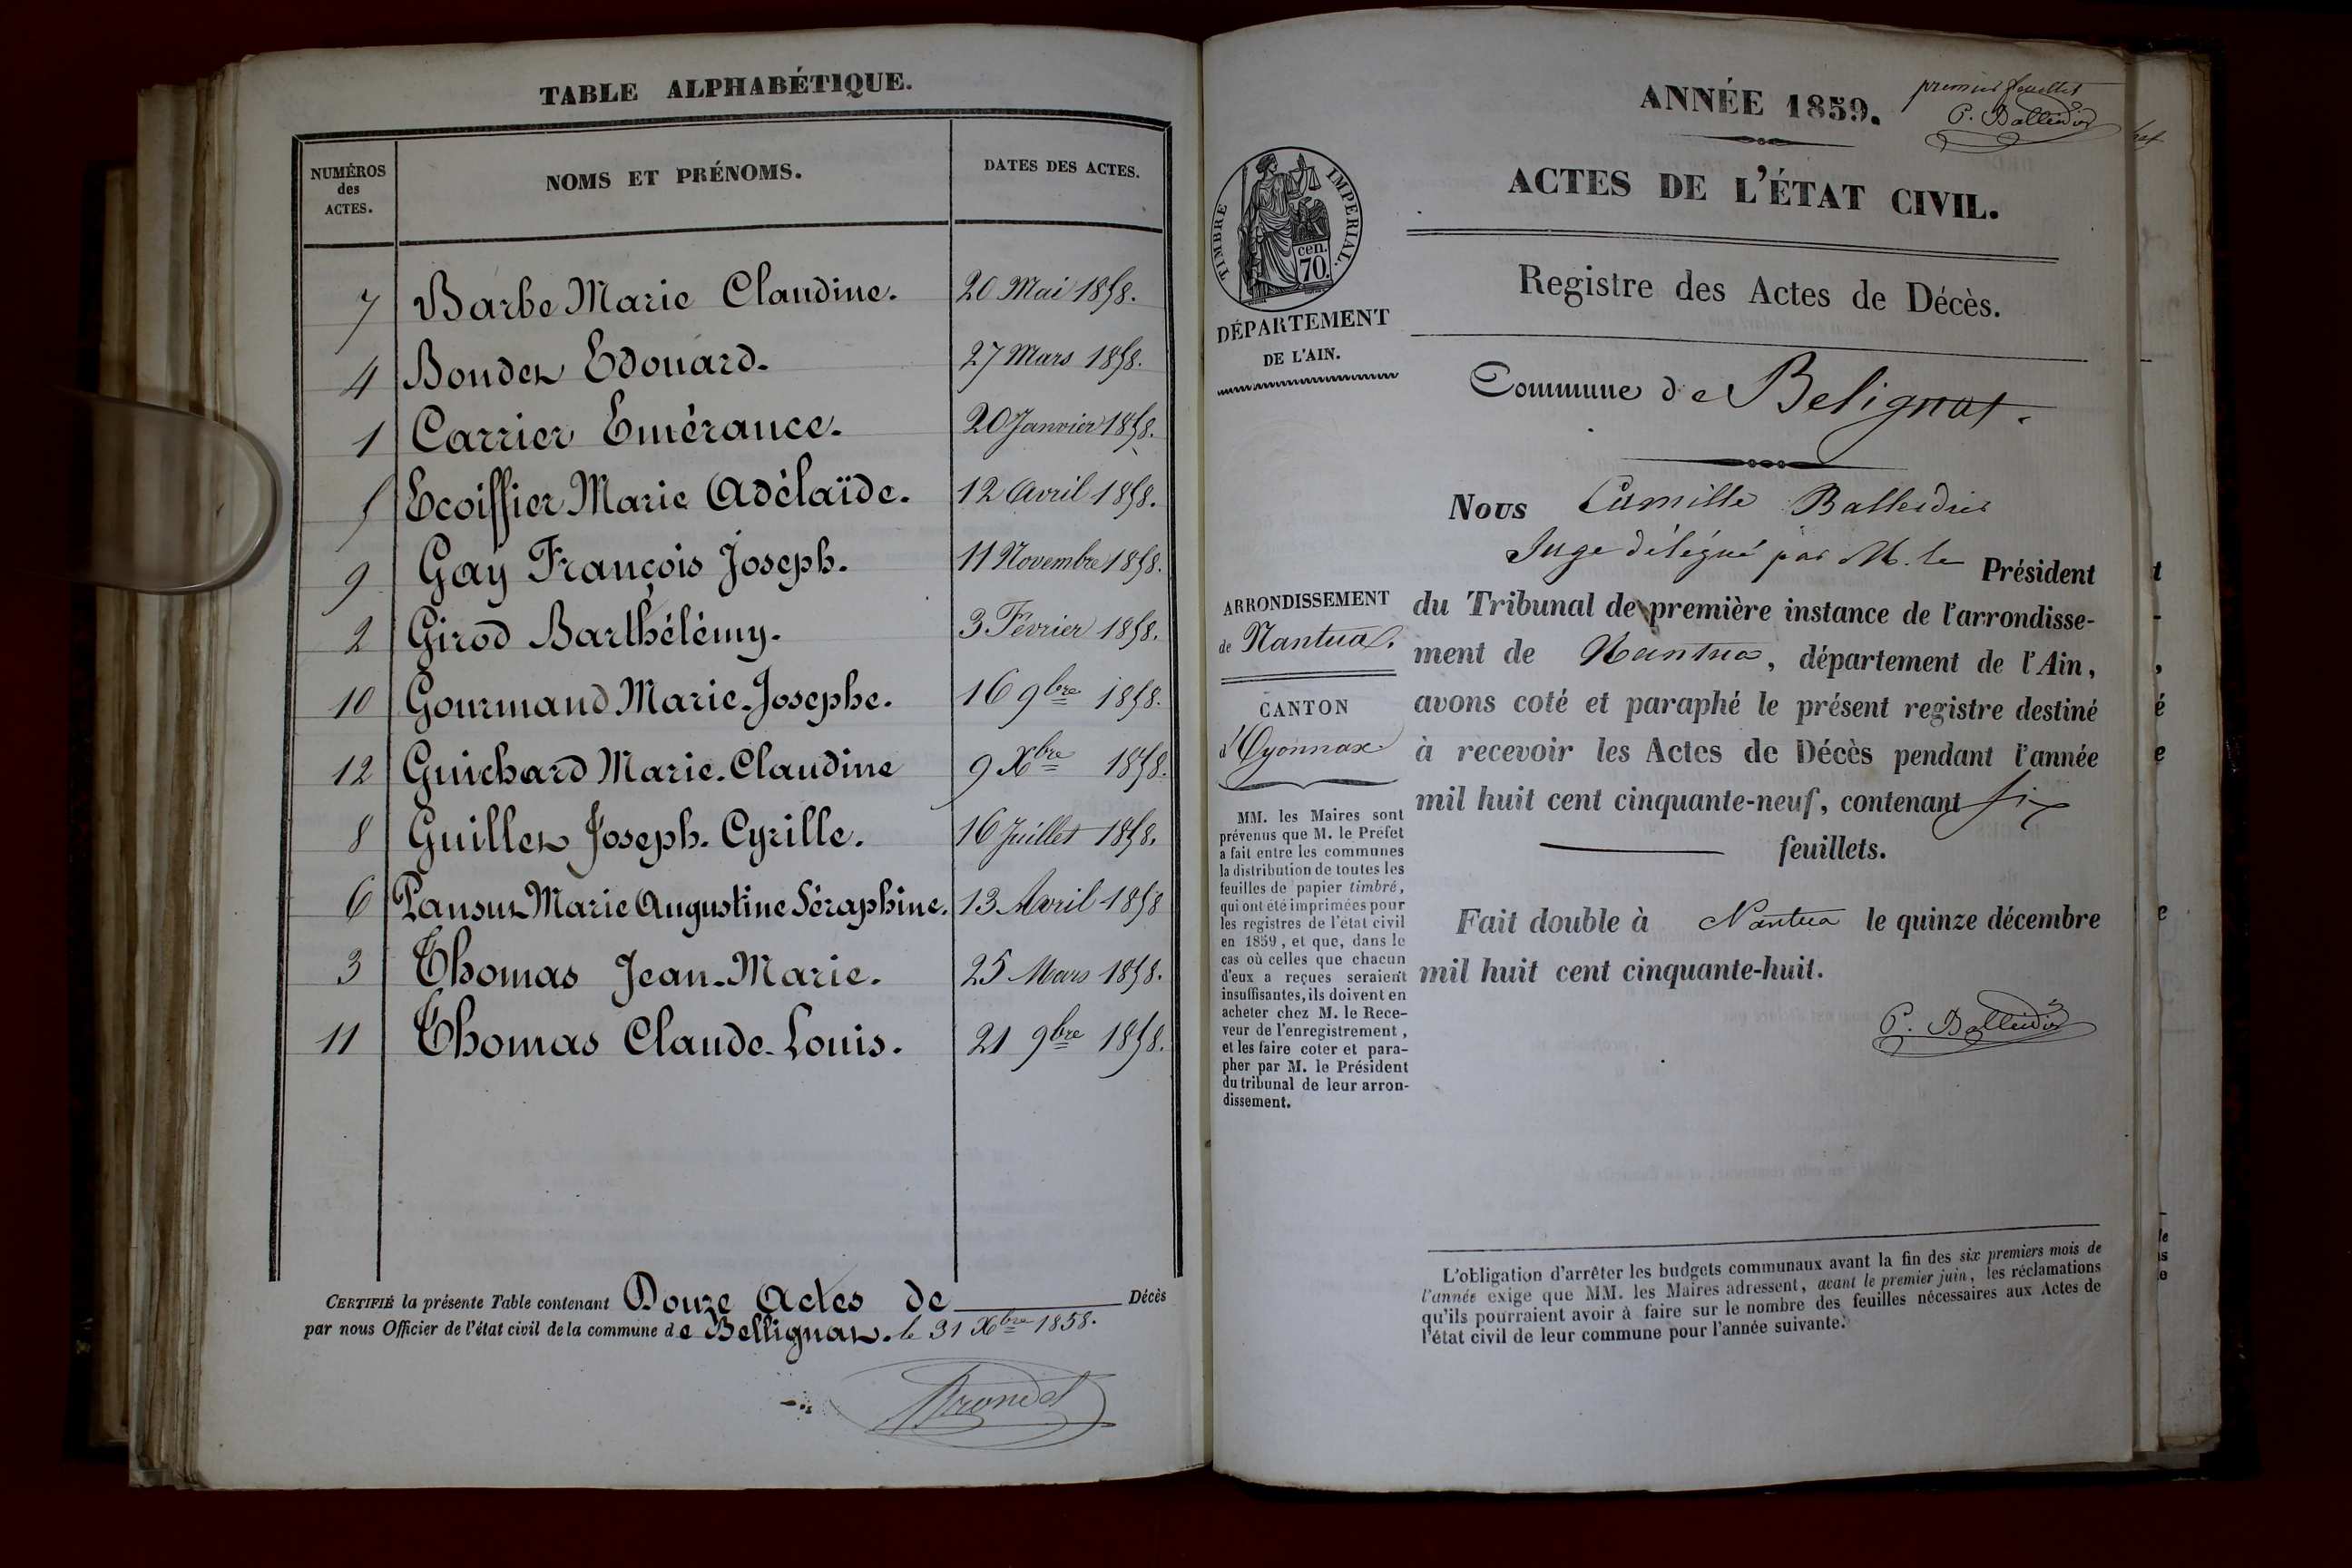 TABLE ALPHABÉTIQUE.
NUMÉROS
des
ACTES.
NOMS ET PRÉNOMS.
DATES DES ACTES.
7 Barbe Marie Claudine. 20 Mai 1858.
4 Bondet Edouard. 27 Mars 1858.
1 Carrier Emérance. 20 Janvier 1858.
5 Ecoiffier Marie Adélaïde. 12 Avril 1858.
9 Gay François Joseph. 11 Novembre 1858.
2 Girod Barthélémy. 3 Février 1858.
10 Gourmand Marie-Josephe. 16 9bre 1858.
12 Guichard Marie-Claudine 9 Xbre 1858.
8 Guillet Joseph-Cyrille. 16 Juillet 1858.
6 Pansut Marie Augustine Séraphine. 13 Avril 1858
3 Thomas Jean-Marie. 25 Mars 1858.
11 Thomas Claude-Louis. 21 9bre 1858.
CERTIFIÉ la présente Table contenant Douze Actes de Décès
par nous Officier de l'état civil de la commune de Bellignat. le 31 Xbre 1858.
ANNÉE 1859.
premier feuillet
ACTES DE L'ÉTAT CIVIL.
TIMBRE IMPERIAL.
cen.
70.
DÉPARTEMENT
DE L'AIN.
Registre des Actes de Décès.
Commune de Belignat.
Nous Camille
Juge délégué par M. le Président
du Tribunal de première instance de l'arrondisse-
ment de Nantua, département de l'Ain,
avons coté et paraphé le présent registre destiné
à recevoir les Actes de Décès pendant l'année
mil huit cent cinquante-neuf, contenant six
feuillets.
Fait double à Nantua le quinze décembre
mil huit cent cinquante-huit.
ARRONDISSEMENT
de Nantua.
CANTON
d'Oyonnax
MM. les Maires sont
prévenus que M. le Préfet
a fait entre les communes
la distribution de toutes les
feuilles de papier timbré,
qui ont été imprimées pour
les registres de l'état civil
en 1859, et que, dans le
cas où celles que chacun
d'eux a reçues seraient
insuffisantes, ils doivent en
acheter chez M. le Rece-
veur de l'enregistrement,
et les faire coter et para-
pher par M. le Président
du tribunal de leur arron-
dissement.
L'obligation d'arrêter les budgets communaux avant la fin des six premiers mois de
l'année exige que MM. les Maires adressent, avant le premier juin, les réclamations
qu'ils pourraient avoir à faire sur le nombre des feuilles nécessaires aux Actes de
l'état civil de leur commune pour l'année suivante.